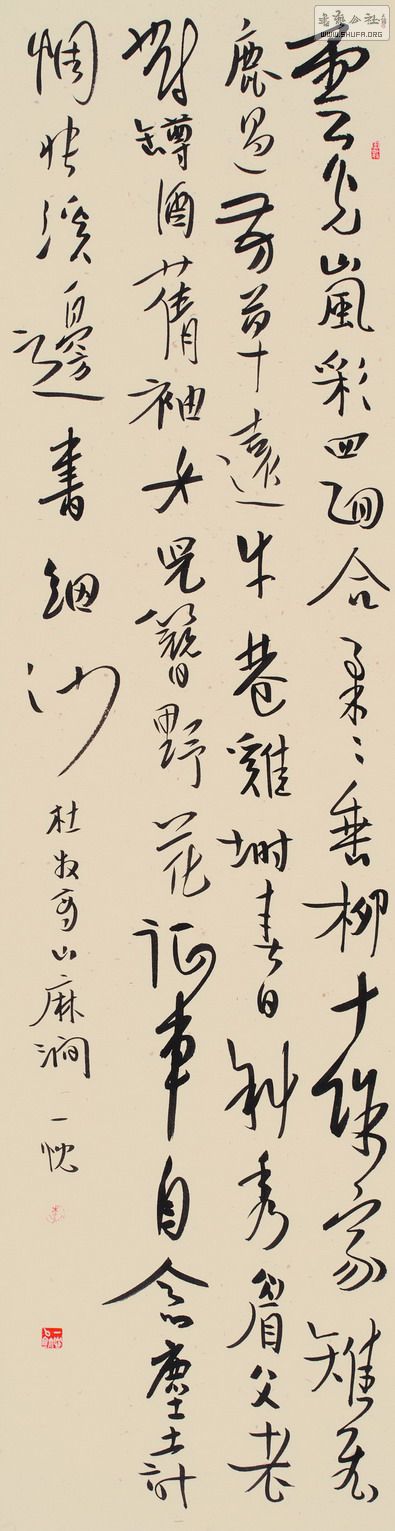 書藝公社
WWW.SHUFA.ORG
雲光嵐彩四面合柔〻垂柳十餘家雉飛
鹿過芳草遠牛巷雞塒春日斜秀眉父老
對罇酒蒨袖女兒簪野花征車自念塵土計
惆悵溪邊書細沙
杜牧商山麻澗 一